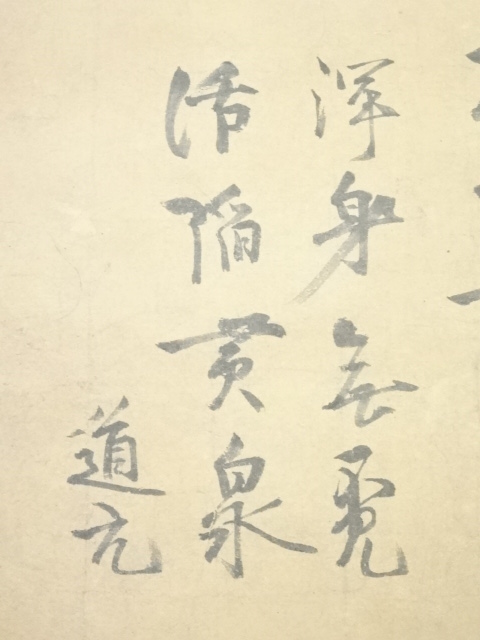 渾身無覓
活陷黄泉
道元